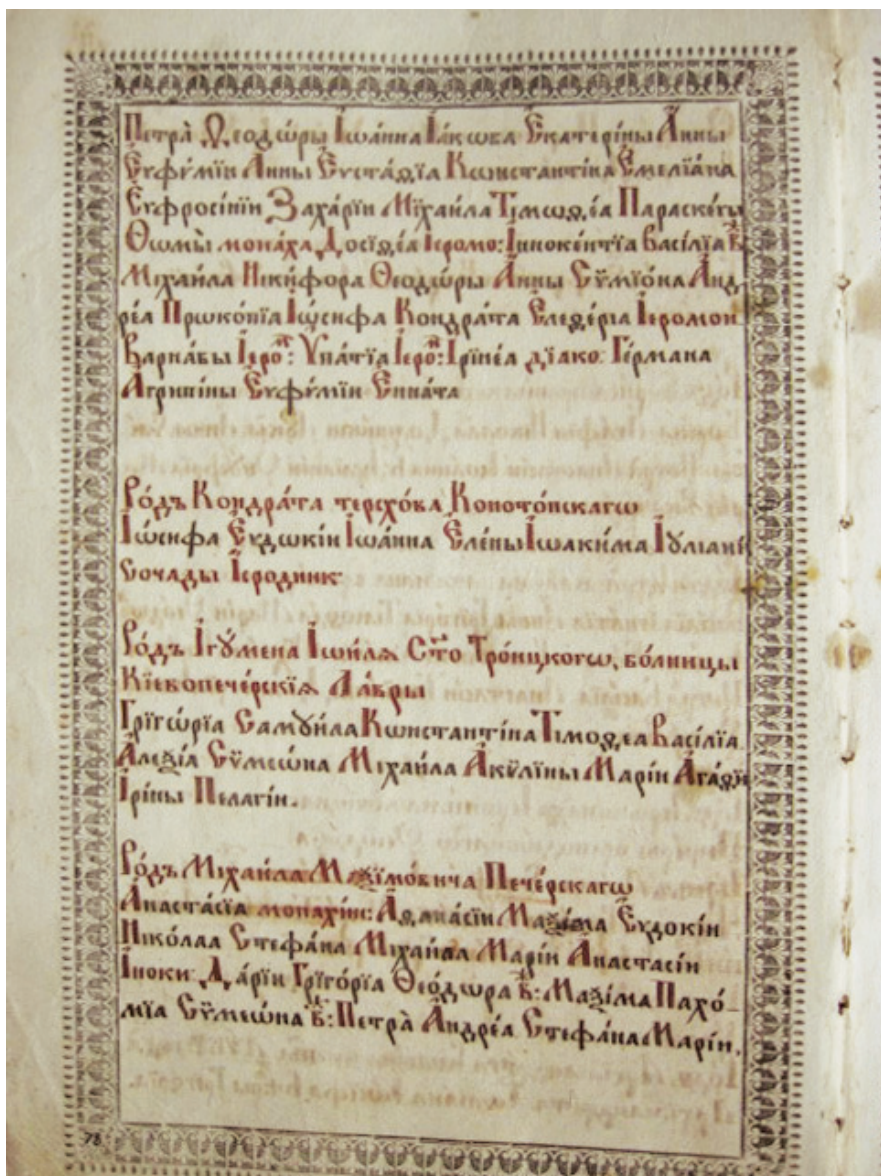 Петра̀ Ѳеодѡ́ры Іѡа́нна Іа́кѡва Екатери́ны А́нны
Еѵфи́мїи Анны Еѵста́ѳїа Кѡнстанті́на Емелїа́на
Еѵфросі́нїи Заха́рїи Мїхаи́ла Тїмоѳ́еа Параске́гы
Ѳомы̀ мона́ха Досїѳ́еа Іеромо: Інноке́нтїа Васі́лїа в҃
Міхаи́ла Ники́фора Ѳеодѡ́ры А́нны Сѷмїо́на Анд
ре́а Прѡко́пїа Іѡ́сифа Кондра́та Елеѳ́ерїа Іеромон
Варна́вы Іеромⷪ: Ѵпа́тїа Іеромⷪ: Ірїне́а дїако: Ге́рмана
Агрипі́ны Еѵфи́мїи
Ро́дъ Кондра́та терехо́ва Коното́пскагѡ
Іѡ́сифа Еѵдокі́и Іѡа́нна Еле́ны Іѡаки́ма Іꙋлїані
Сочады І҆еродник
Ро́дъ Ігꙋ́мена Іѡи́лѧ Ст҃о Тро́ицкогѡ, бо́лницы
Кїевопече́рскїѧ Ла́вры
Грїгѡ́рїа Самꙋи́ла Кѡнстанті́на Тімоѳ́еа Васі́лїа
Алеѯі́а Сѷмеѡ́на Міхаи́ла Акѷли́ны Марі́и Ага́ѳїи
Ірі́ны Пелагі́и.
Ро́дъ Міхаи́ла Маѯі́мовича Пече́рскагѡ
Анаста́сїа монахі́нѣ: Аѳана́сїи Маѯі́ма Еѵдокі́и
Нїко́лаа Стефа́на Міхаи́ла Марі́и Анастасі́и
І́ноки: Да́рїи Грїго́рїа Ѳео́дѡра в҃: Маѯі́ма Пахо́
мїа Сѷмеѡ́на в҃: Петра̀ Андре́а Стефа́на Марі́и.
78